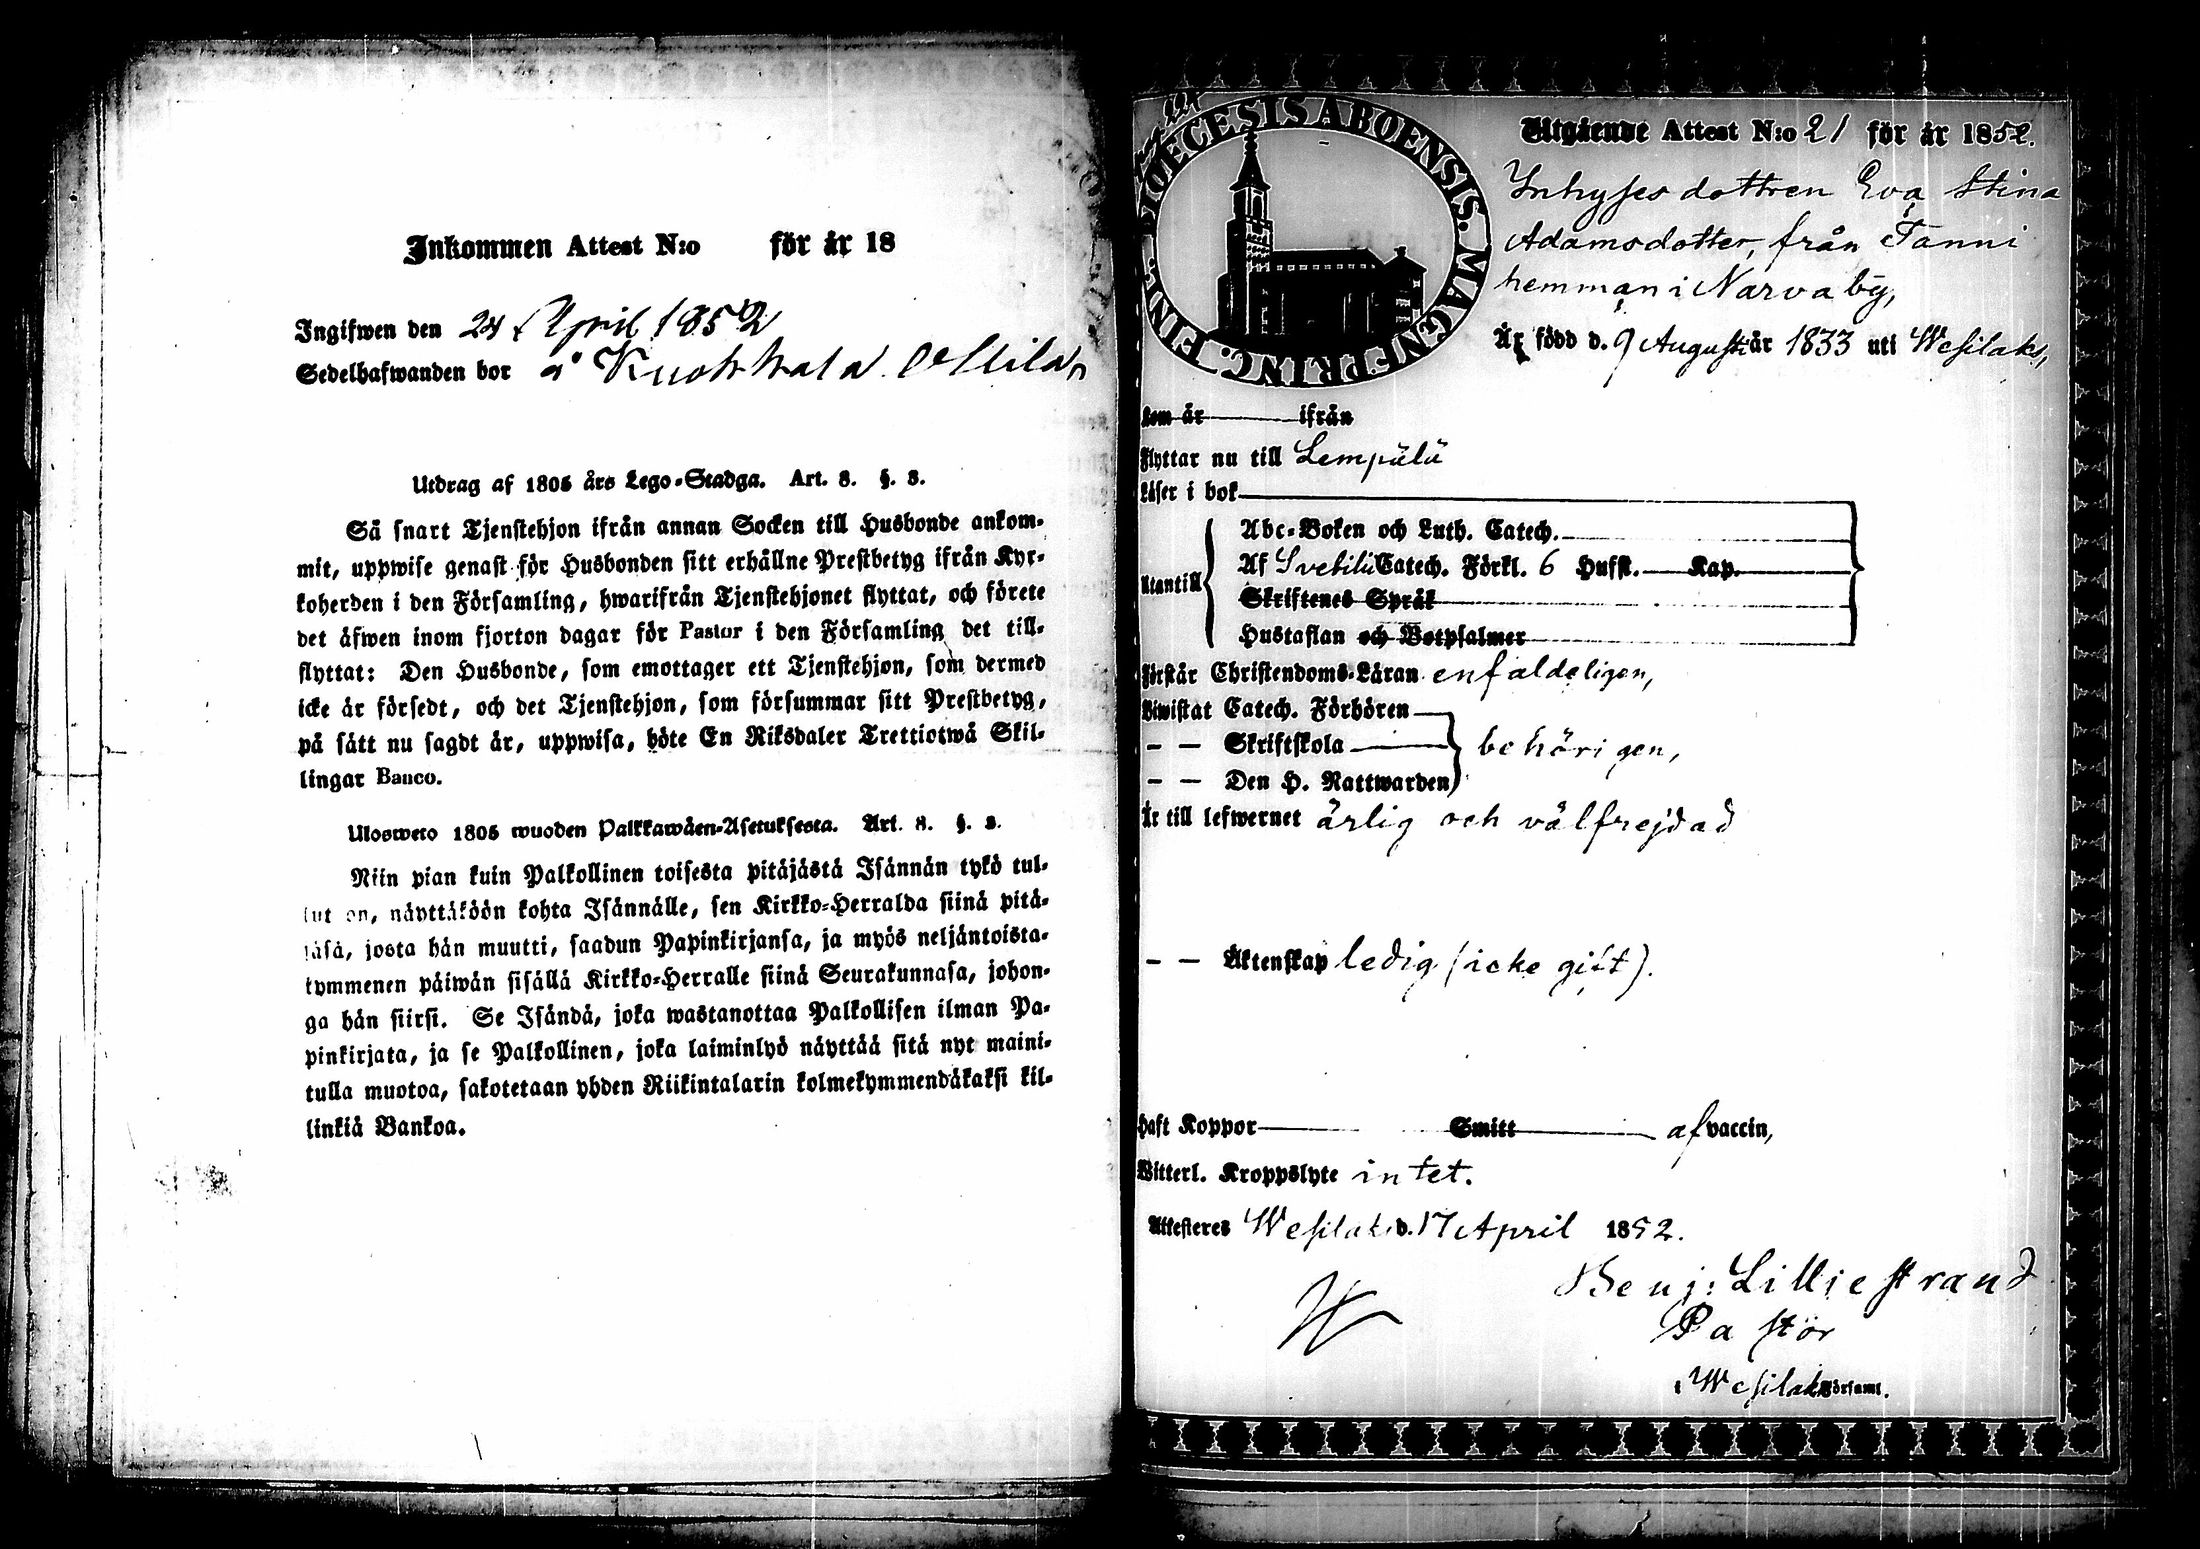 Inkommen Attest N:o för år 18
Ingifwen den 24 April 1852
Sedelhafwanden bor å Kuokkala
Utdrag af 1805 års Lego-Stadga. Art. 8. §. 3.
Så snart Tjenstehjon ifrån annan Socken till Husbonde ankom-
mit, uppwise genast för Husbonden sitt erhållne Prestbetyg ifrån Kyr-
koherden i den Församling, hwarifrån Tjenstehjonet flyttat, och förete
det äfwen inom fjorton dagar för Pastor i den Församling det till-
flyttat: Den Husbonde, som emottager ett Tjenstehjon, som dermed
icke är försedt, och det Tjenstehjon, som försummar sitt Prestbetyg,
på sätt nu sagdt är, uppwisa, böte En Riksdaler Trettiotwå Skil-
lingar Banco.
Ulosweto 1805 wuoden Palkkawäen-Asetuksesta. Art. 8. §. 3.
Niin pian kuin Palkollinen toisesta pitäjästä Isännän tykö tul-
lut on, näyttäköön kohta Isännälle, sen Kirkko-Herralda siinä pitä-
jäsä, josta hän muutti, saadun Papinkirjansa, ja myös neljäntoista-
kymmenen päiwän sisällä Kirkko-Herralle siinä Seurakunnasa, johon-
ga hän siirsi. Se Isändä, joka wastanottaa Palkollisen ilman Pa-
pinkirjata, ja se Palkollinen, joka laiminlyö näyttää sitä nyt maini-
tulla muotoa, sakotetaan yhden Riikintalarin kolmekymmendäkaksi kil-
linkiä Bankoa.
DIOECESIS ABOENSIS. MAGNI PRINC. FINL.
Utgående Attest N:o 21 för år 1852.
Inhyses dottren Eva Stina
Adamsdotter, från Tanni
hemman i Narva by,
Är född d. 9 Augusti år 1833 uti Wesilaks,
kom år ifrån
Flyttar nu till Lempälä
Läser i bok
Utantill
Abc-Boken och Luth. Catech.
Af Svebilii Catech. Förkl. 6 Hufst. Kap.
Skriftenes Språk
Hustaflan och Botpsalmer
Förstår Christendoms-Läran enfaldeligen,
Biwistat Catech. Förhören
— — Skriftskola behörigen,
— — Den H. Nattwarden
Är till lefwernet ärlig och välfrejdad
— — Äktenskap ledig (icke gift).
Haft Koppor Smitt af vaccin,
Witterl. Kroppslyte intet.
Attesteres Wesilaks d. 17 April 1852.
Benj: Lilliestrand
Pastor
i Wesilaks Församl.